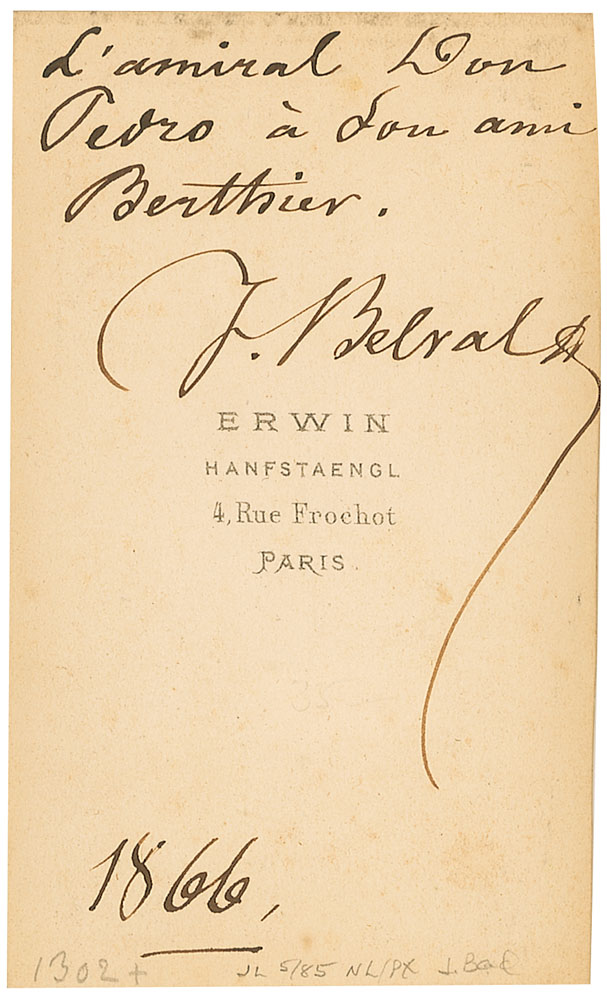 L'amiral Don
Pedro à son ami
Berthier.
J. Belval
ERWIN
HANFSTAENGL
4, Rue Frochot
PARIS.
1866,
1302 +
JL 5/85 NL/PX J. Bel